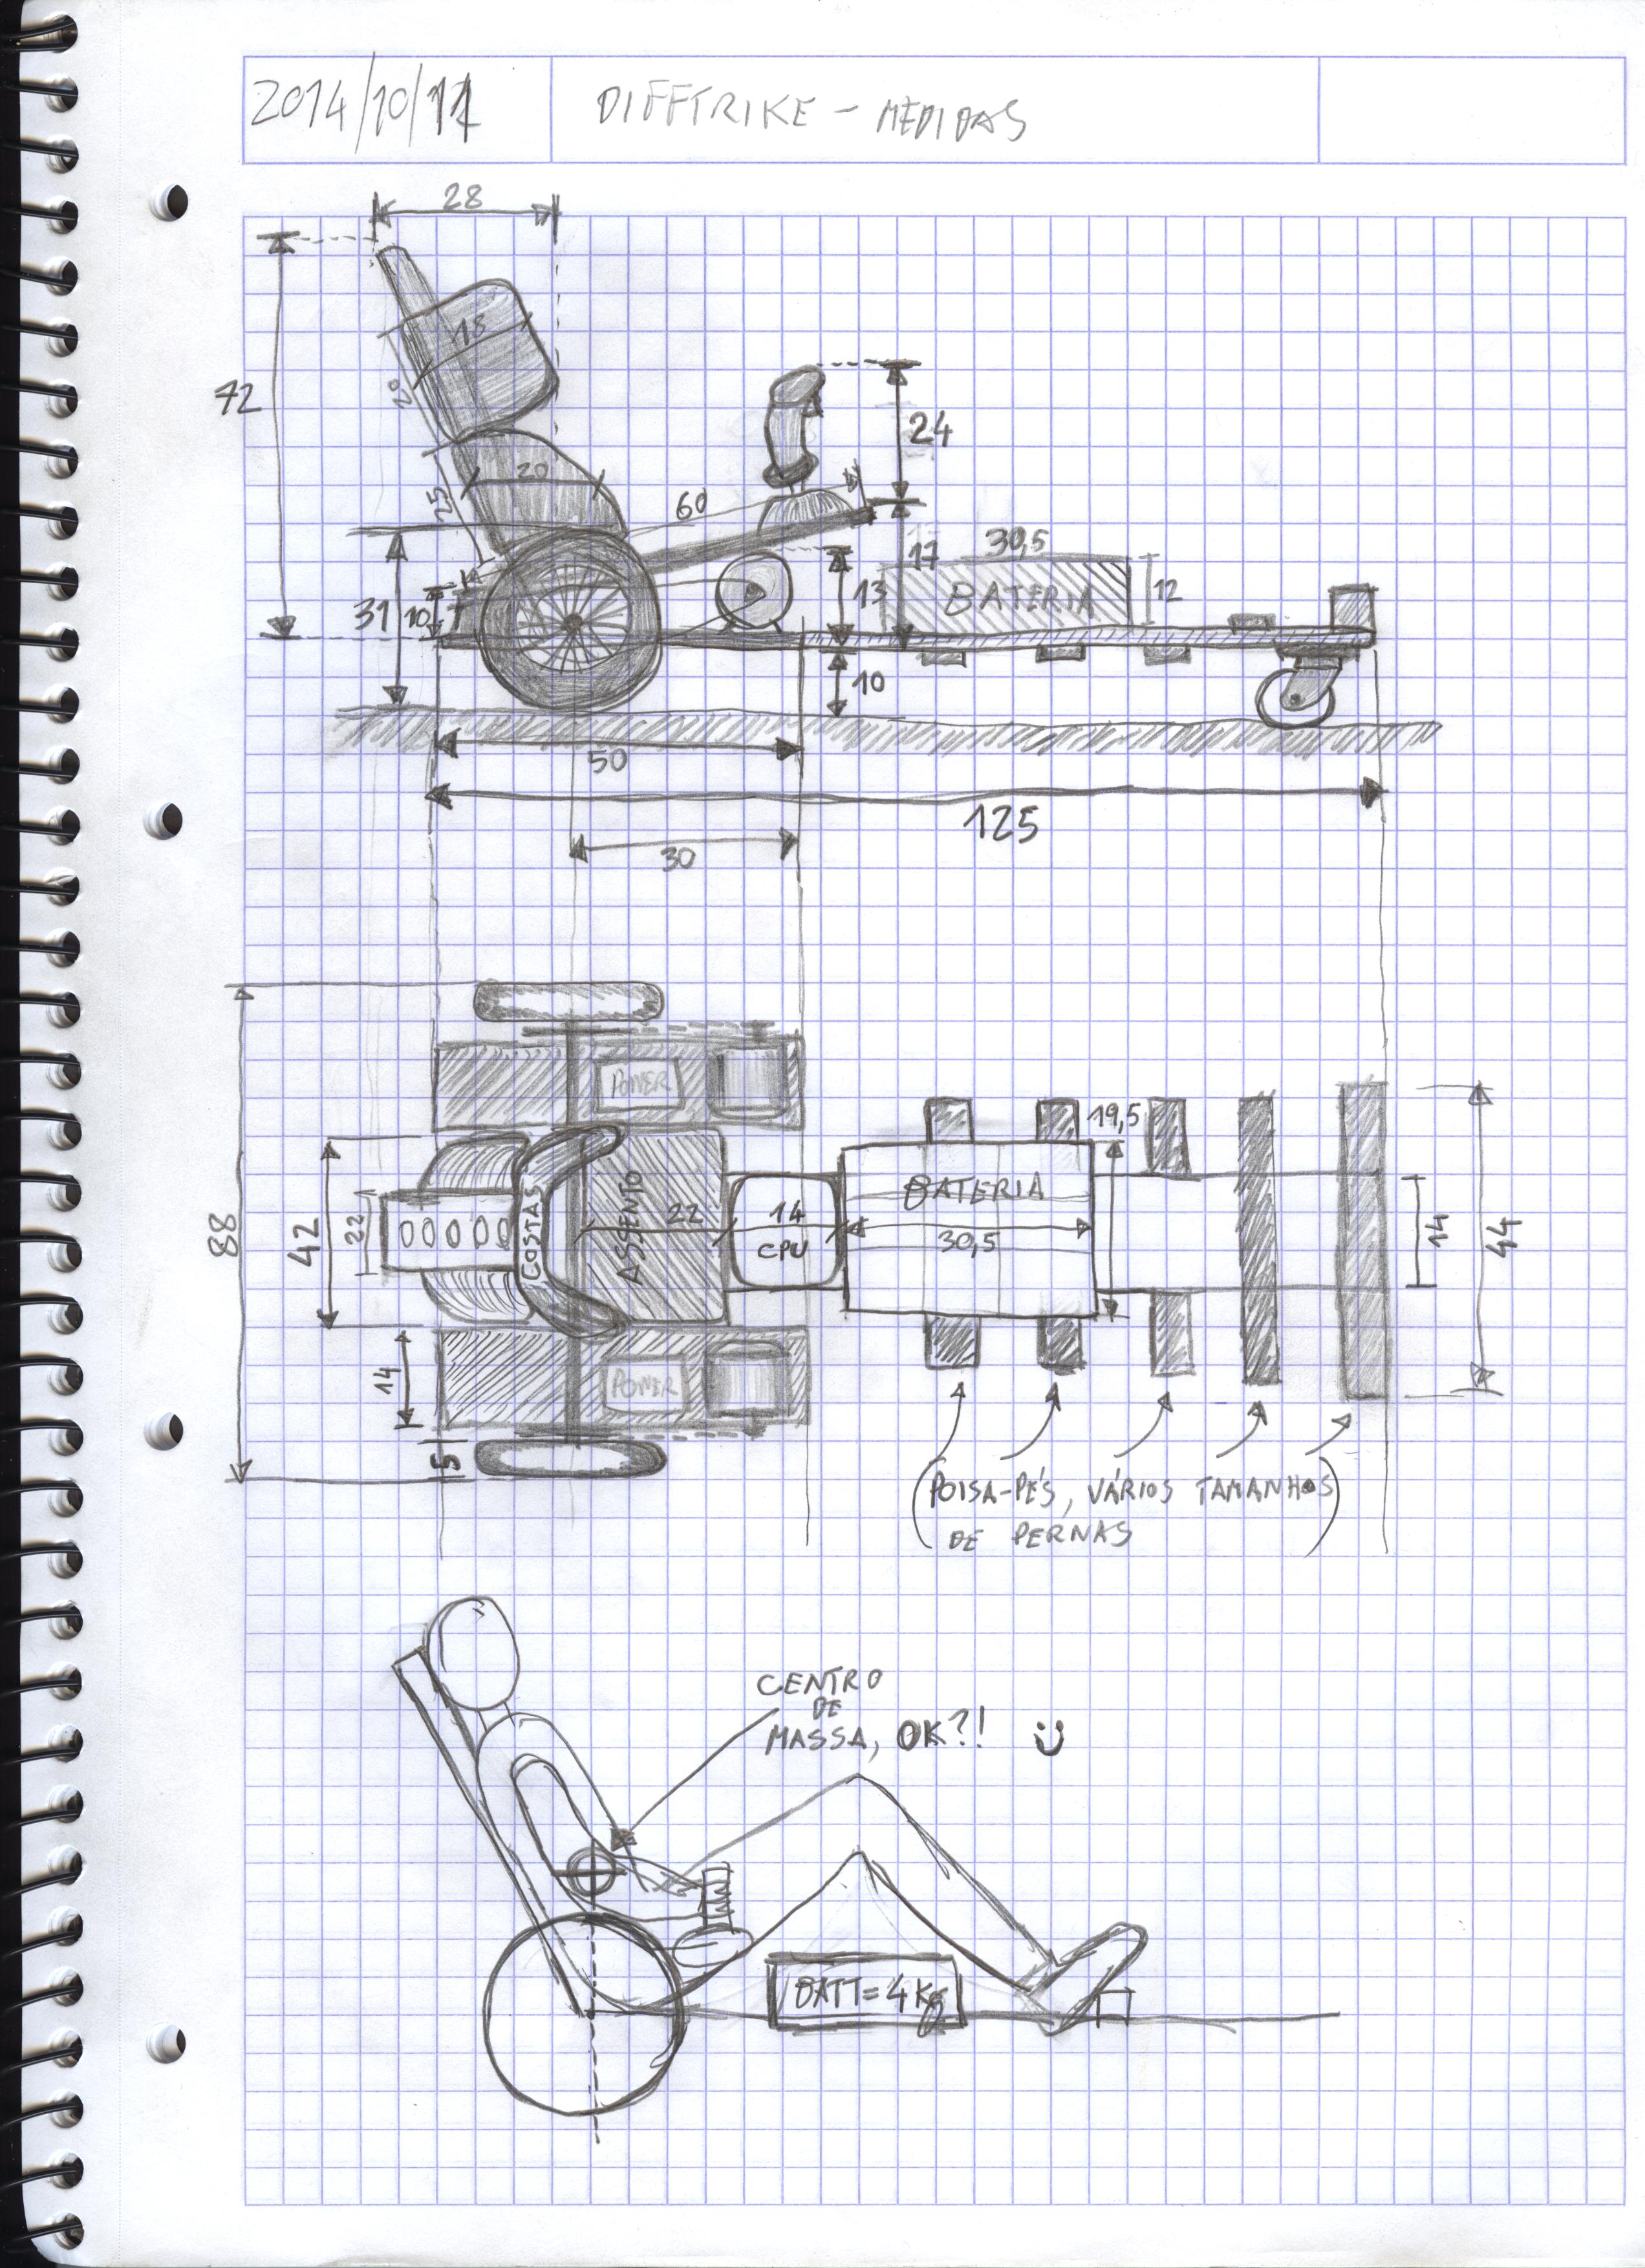 2014/10/11
DIFFTRIKE - MEDIDAS
28
72
18
20
24
20
25
60
17
30,5
31
10
14
13
BATERIA
12
10
50
125
30
88
POWER
19,5
42
22
COSTAS
ASSENTO
22
14
CPU
BATERIA
30,5
14
44
14
POWER
5
(POISA-PÉS, VÁRIOS TAMANHOS
DE PERNAS)
CENTRO
DE
MASSA, OK?!
BATT=4Kg